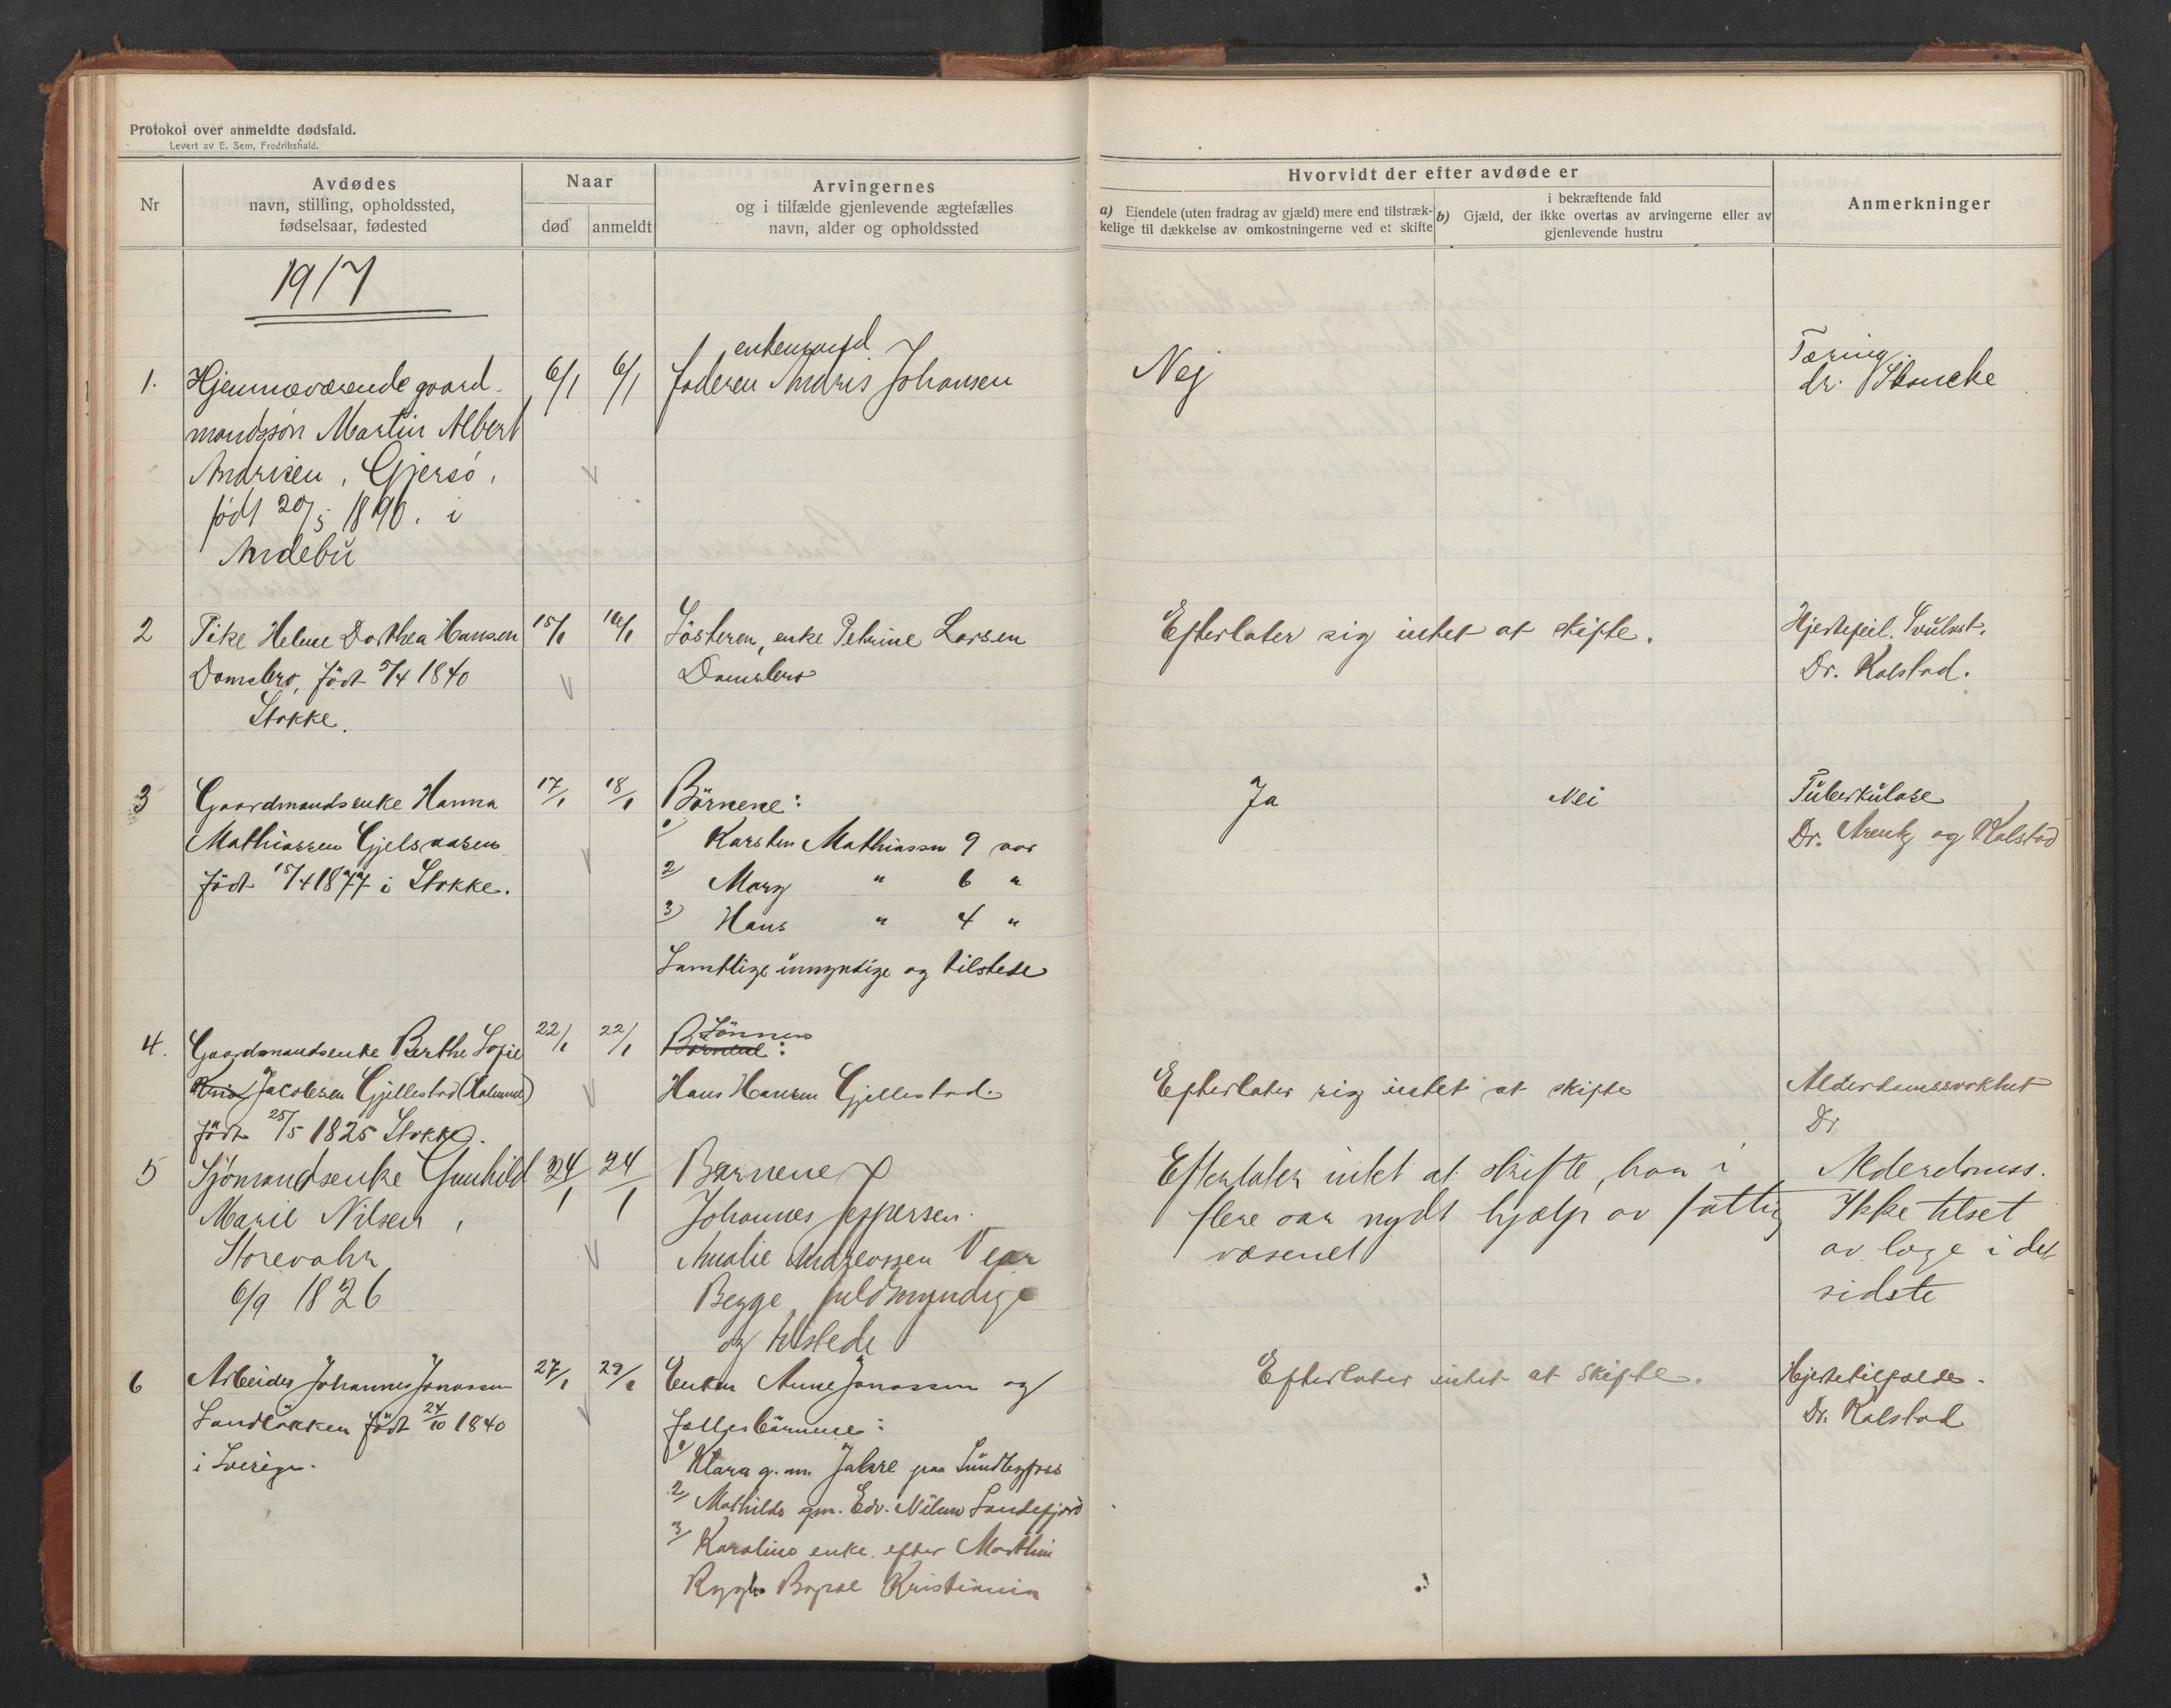 Protokol over anmeldte dødsfald.
Levert av E. Sem, Fredrikshald.
Nr
Avdødes
navn, stilling, opholdssted,
fødselsaar, fødested
Naar
død
anmeldt
Arvingernes
og i tilfælde gjenlevende ægtefælles
navn, alder og opholdssted
Hvorvidt der efter avdøde er
a) Eiendele (uten fradrag av gjæld) mere end tilstræk-
kelige til dækkelse av omkostningerne ved et skifte
i bekræftende fald
b) Gjæld, der ikke overtas av arvingerne eller av
gjenlevende hustru
Anmerkninger
1917
1.
Hjemmeværende gaard-
mandssøn Martin Albert
Andrisen, Gjersø,
født 20/5 1890. i
Andebu
6/1
6/1
enkemand
faderen Andris Johansen
Nej
Tæring.
dr.
2
Pike Helene Dorthea Hansen
Damsbro, født 5/4 1840
Stokke.
15/1
16/1
Søsteren, enke Petrine Larsen
Damsbro
Efterlater sig intet at skifte.
Hjertefeil. Svulst.
Dr. Kalstad.
3
Gaardmandsenke Hanna
Mathiassen Gjelsaasen
født 15/4 1877 i Stokke.
17/1
18/1
Børnene:
1/ Karsten Mathiassen 9 aar
2/ Mary " 6 "
3/ Hans " 4 "
Samtlige umyndige og tilstede
Ja
Nei
Tuberkulose
Dr. Arentz og Kalstad
4.
Gaardmandsenke Berthe Sofie
Jacobsen Gjellestad
født 25/5 1825 Stokke.
22/1
22/1
Sønnen
Børnene:
Hans Hansen Gjellestad.
Efterlater sig intet at skifte
Alderdomssvakhet
Dr
5
Sjømandsenke Gunhild
Marie Nilsen,
Storevahr
6/9 1826
24/1
24/1
Barnene
Johannes Jeppersen.
Amalie Andreassen Vear
Begge fuldmyndige
og tilstede
Efterlater intet at skifte, har i
flere aar nydt hjælp av fattig
væsenet
Alderdomss.
Ikke tilset
av læge i det
sidste
6
Arbeider Johannes Jonassen
Sandløkken født 24/10 1840
i Sverige.
27/1
29/1
Enken Anne Jonassen og
fællesbørnene:
1/ Klara g.m. Jahre paa Sundbyfoss
2/ Mathilde gm. Edv. Nilsen Sandefjord
3/ Karoline enke efter Marthin
Kristiania
Efterlater intet at skifte.
Hjertetilfælde.
Dr. Kalstad